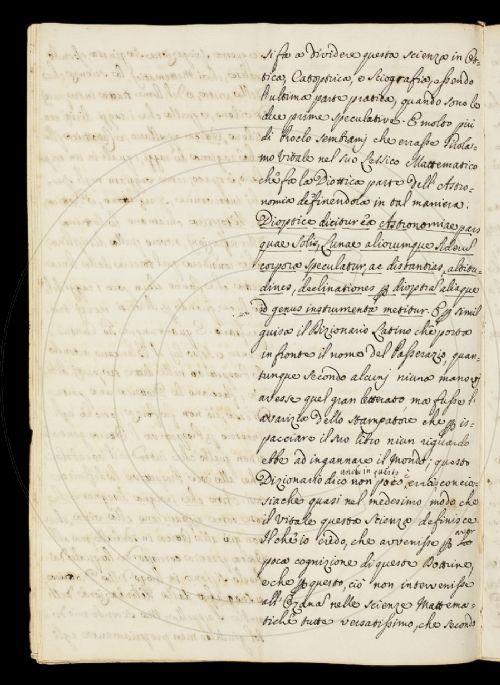 si fa a dividere questa scienza in Ot-
tica, Catoptrica, e Sciografia, essendo
l'ultima parte pratica, quando sono le
due prime speculative. E molto più
di Proclo sembrami che errasse Girola-
mo Vitale nel suo Lessico Mattematico
che fa la Diottica parte dell'Astro-
nomia definendola in tal maniera:
Dioptice dicitur ea Astronomiae pars
quae Solis, Lunae aliorumque Siderum
corpora speculatur, ac distantias, altitu-
dines, declinationes per dioptras aliaque
id genus instrumenta metitur. E per simil
guisa il Dizionario Latino che porta
in fronte il nome del Passerazio, quan-
tunque secondo alcunj niuna mano vj
avesse quel gran letterato, ma fusse l'
avarizia dello Stampatore che per is-
pacciare il suo libro niun riguardo
ebbe ad ingannare il Mondo; questo
Dizionario dico anche in questo non poco errò; concio-
siache quasi nel medesimo modo che
il Vitale questa scienza definisce.
Il che io credo, che avvenisse per la
poca cognizione di queste Dottrine,
e che per questo, ciò non intervenisse
all' nelle scienze Mattema-
tiche tutte versatissimo, che secondo